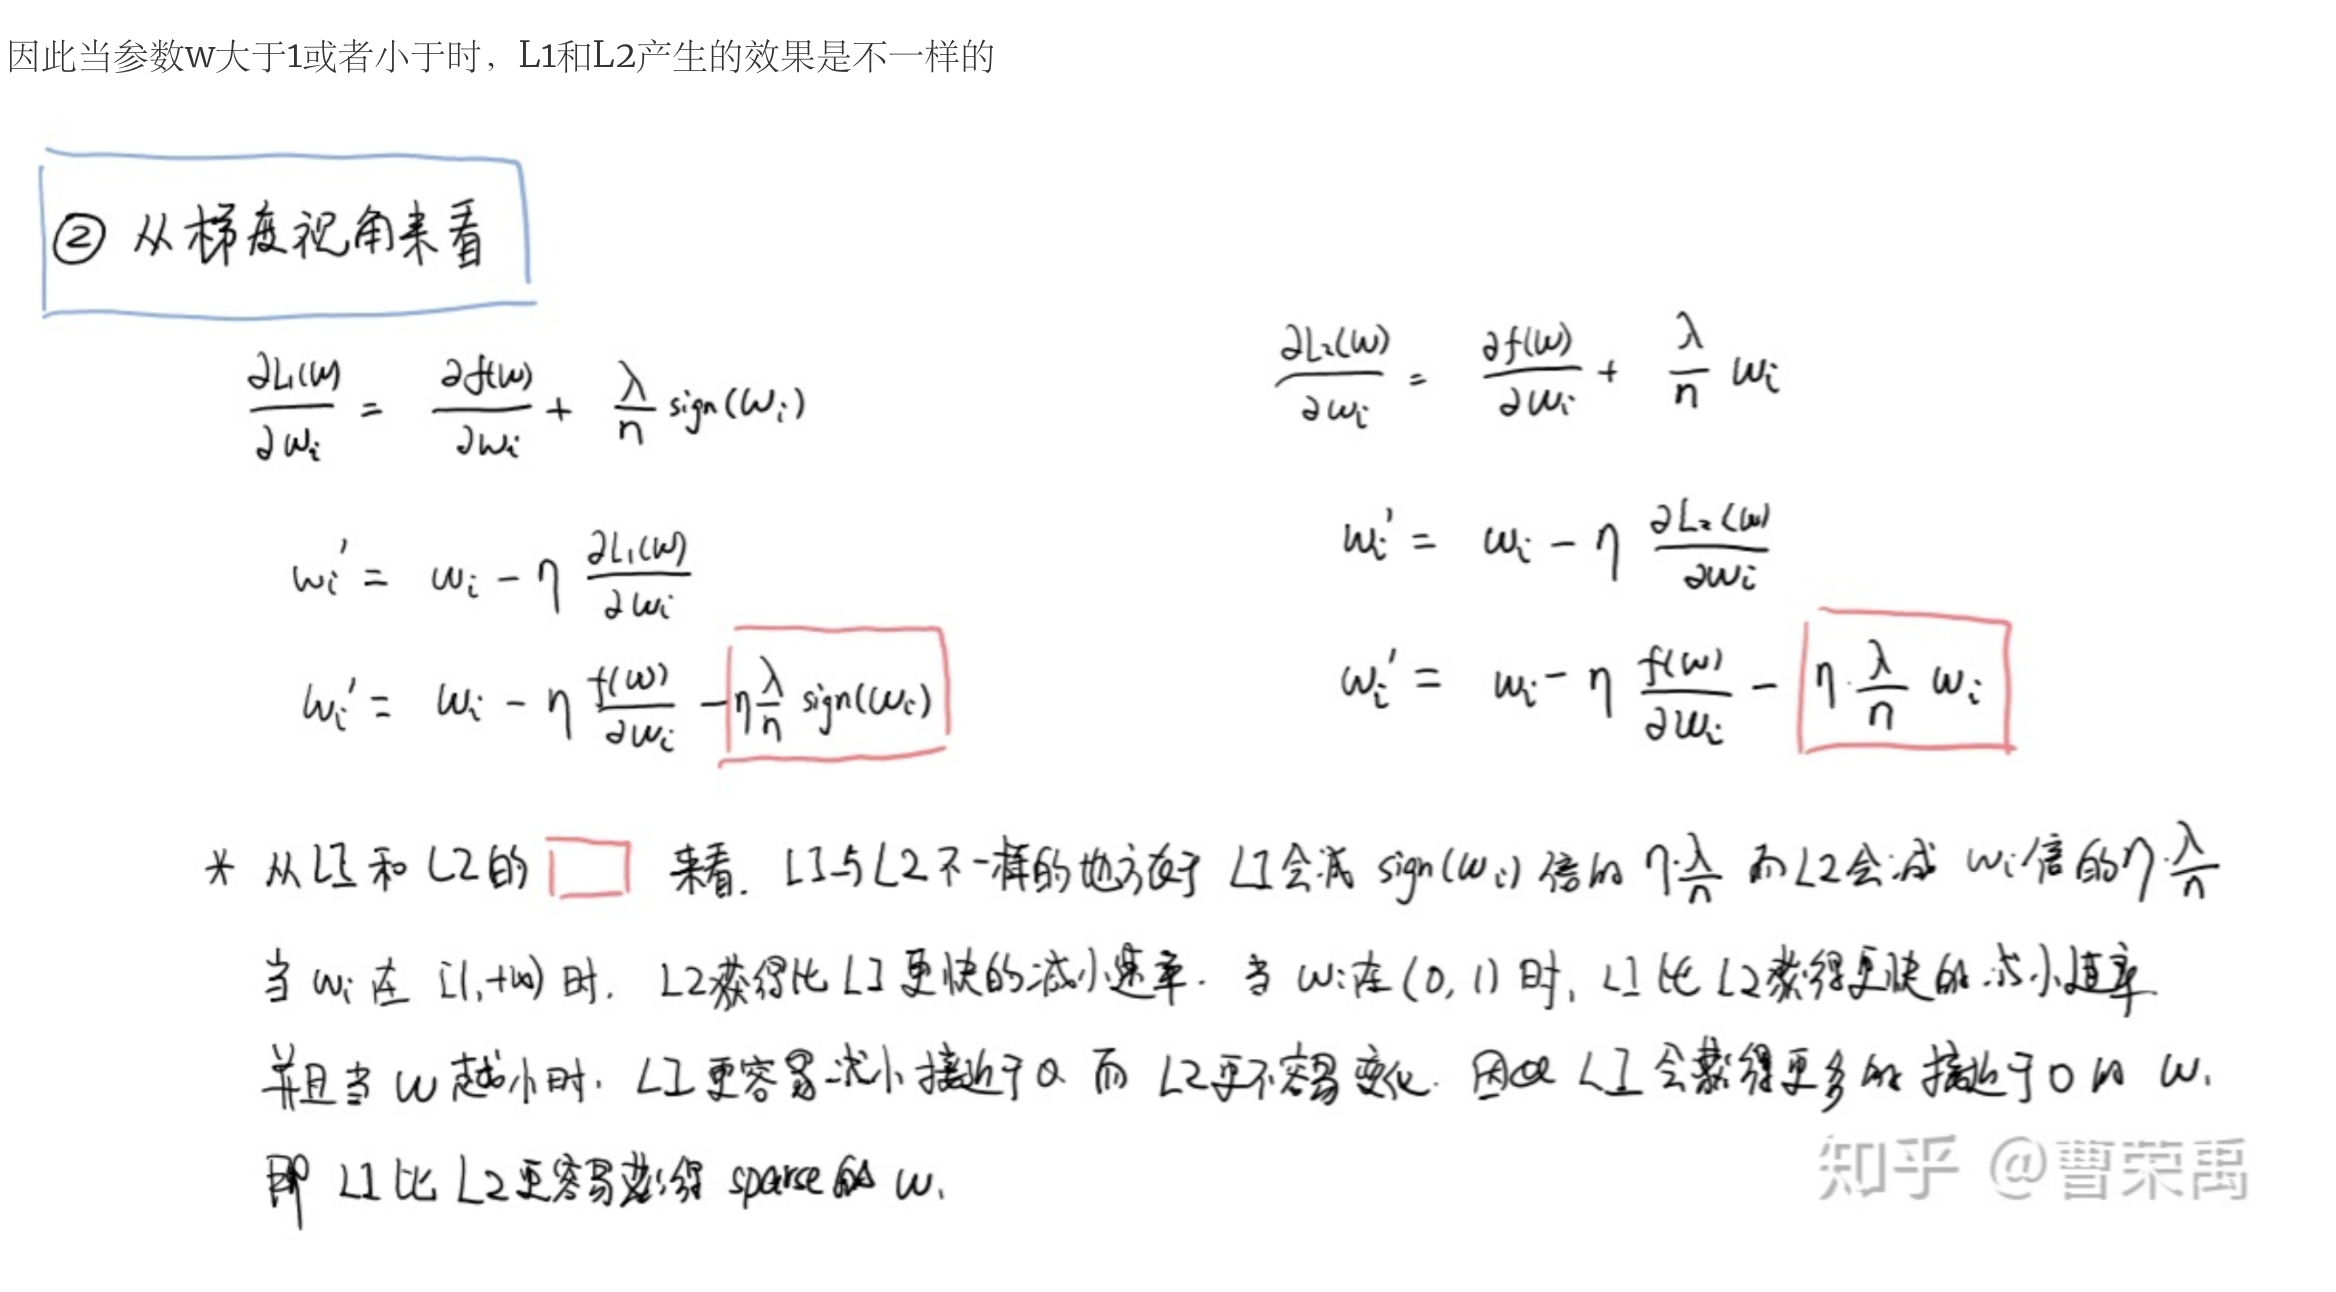 因此当参数w大于1或者小于时，L1和L2产生的效果是不一样的
② 从梯度视角来看
∂L₁(w)/∂wᵢ = ∂f(w)/∂wᵢ + λ/n sign(wᵢ)
∂L₂(w)/∂wᵢ = ∂f(w)/∂wᵢ + λ/n wᵢ
wᵢ' = wᵢ - η ∂L₁(w)/∂wᵢ
wᵢ' = wᵢ - η ∂L₂(w)/∂wᵢ
wᵢ' = wᵢ - η f(w)/∂wᵢ - η λ/n sign(wᵢ)
wᵢ' = wᵢ - η f(w)/∂wᵢ - η · λ/n wᵢ
* 从L1和L2的 来看. L1与L2不一样的地方在于 L1会减 sign(wᵢ) 倍的 η·λ/n 而L2会减 wᵢ倍的η·λ/n
当 wᵢ 在 [1,+∞) 时. L2获得比L1更快的减小速率. 当 wᵢ在(0,1)时, L1比L2获得更快的减小速率
并且当 w 越小时. L1更容易减小接近于0 而 L2更不容易变化. 因此 L1会获得更多的接近于0的 w.
即 L1比L2更容易获得 sparse的 w.
知乎 @曹荣禹